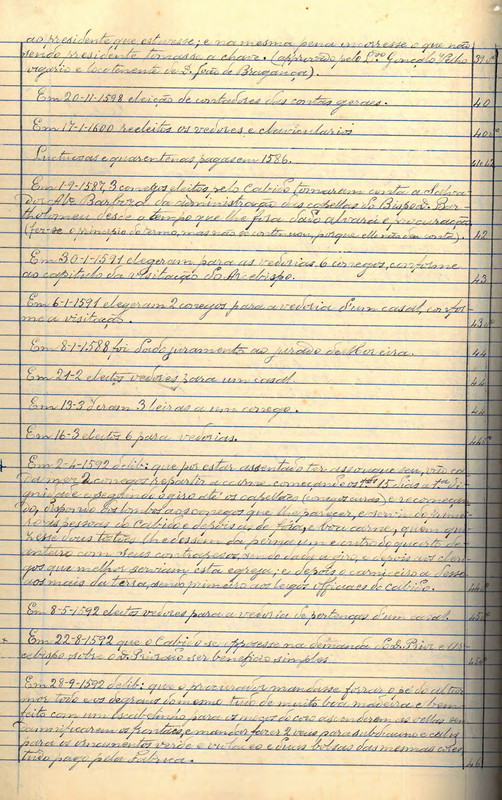 ao presidente que estivesse; e na mesma pena incorresse o que não
sendo presidente tomasse a chave. (approvado pelo L.do Gonçalo
vigario e locotenente de D. João de Bragança). 39 vº
Em 20-11-1598 eleição de contadores das contas geraes. 40
Em 17-1-1600 reeleitos os vedores e clavicularios 40 vº
Luctuosas e quarentenas pagas em 1586.
Em 1-9-1587, 3 conegos eleitos pelo Cabido tomaram conta a Salva-
dor Alz Barbosa da administração das capellas do Bispo D. Bar-
tholomeu desde o tempo que lhe fôra dado alvará e procuração
(fez-se o principio do termo, mas não se continuou, porque elle não deu conta). 42
Em 30-1-1591 elegeram para as vedorias 6 conegos, conforme
ao capitulo da visitação do Arcebispo. 43
Em 6-1-1591 elegeram 2 conegos para a vedoria d'um casal, confor-
me a visitação. 43 vº
Em 8-1-1588 foi dado juramento ao jurado de Moreira. 44
Em 21-2 eleitos vedores para um casal. 44
Em 13-3 deram 3 leiras a um conego. 44
Em 16-3 eleitos 6 para vedorias. 44 vº
Em 2-4-1592 delib: que por estar assentado ter assougue seu,
2 conegos repartir a carne, começando os 15 dias a
e seguindo o giro até os capellães (conegos curas) e recomeçan-
do, dispondo os lombos aos conegos que lhe parecer, e sendo
as pessoas do Cabido e depois de tudo, e
esse dous tratos, lhe dessem da perna, e um e outro do quarto di-
anteiro com seus contrapesos, ando dada a giro, e depois aos cleri-
gos que melhor serviam esta egreja; e depois o carniceiro a desse
aos mais da terra, sendo primeiro aos leigos officiaes do Cabido. 44 vº
Em 8-5-1592 eleitos vedores para a vedoria de pertenças d'um casal. 45 vº
Em 22-8-1592 que o Cabido se oppozesse na demanda do D. Prior e Ar-
cebispo sobre o D. Priorado ser beneficio simples. 45 vº
Em 28-9-1592 delib: que o procurador mandasse forrar o pé do altar
mór todo e os degraus do mesmo tudo de muito boa madeira e bem
feito com um escabelinho para os moços do coro accenderem as vellas sem
damnificarem os frontaes, e mandar fazer 2 veus para subdiacono e calix
para os ornamentos verde e violaceo e duas bolsas das mesmas cores,
tudo pago pela Fabrica. 46